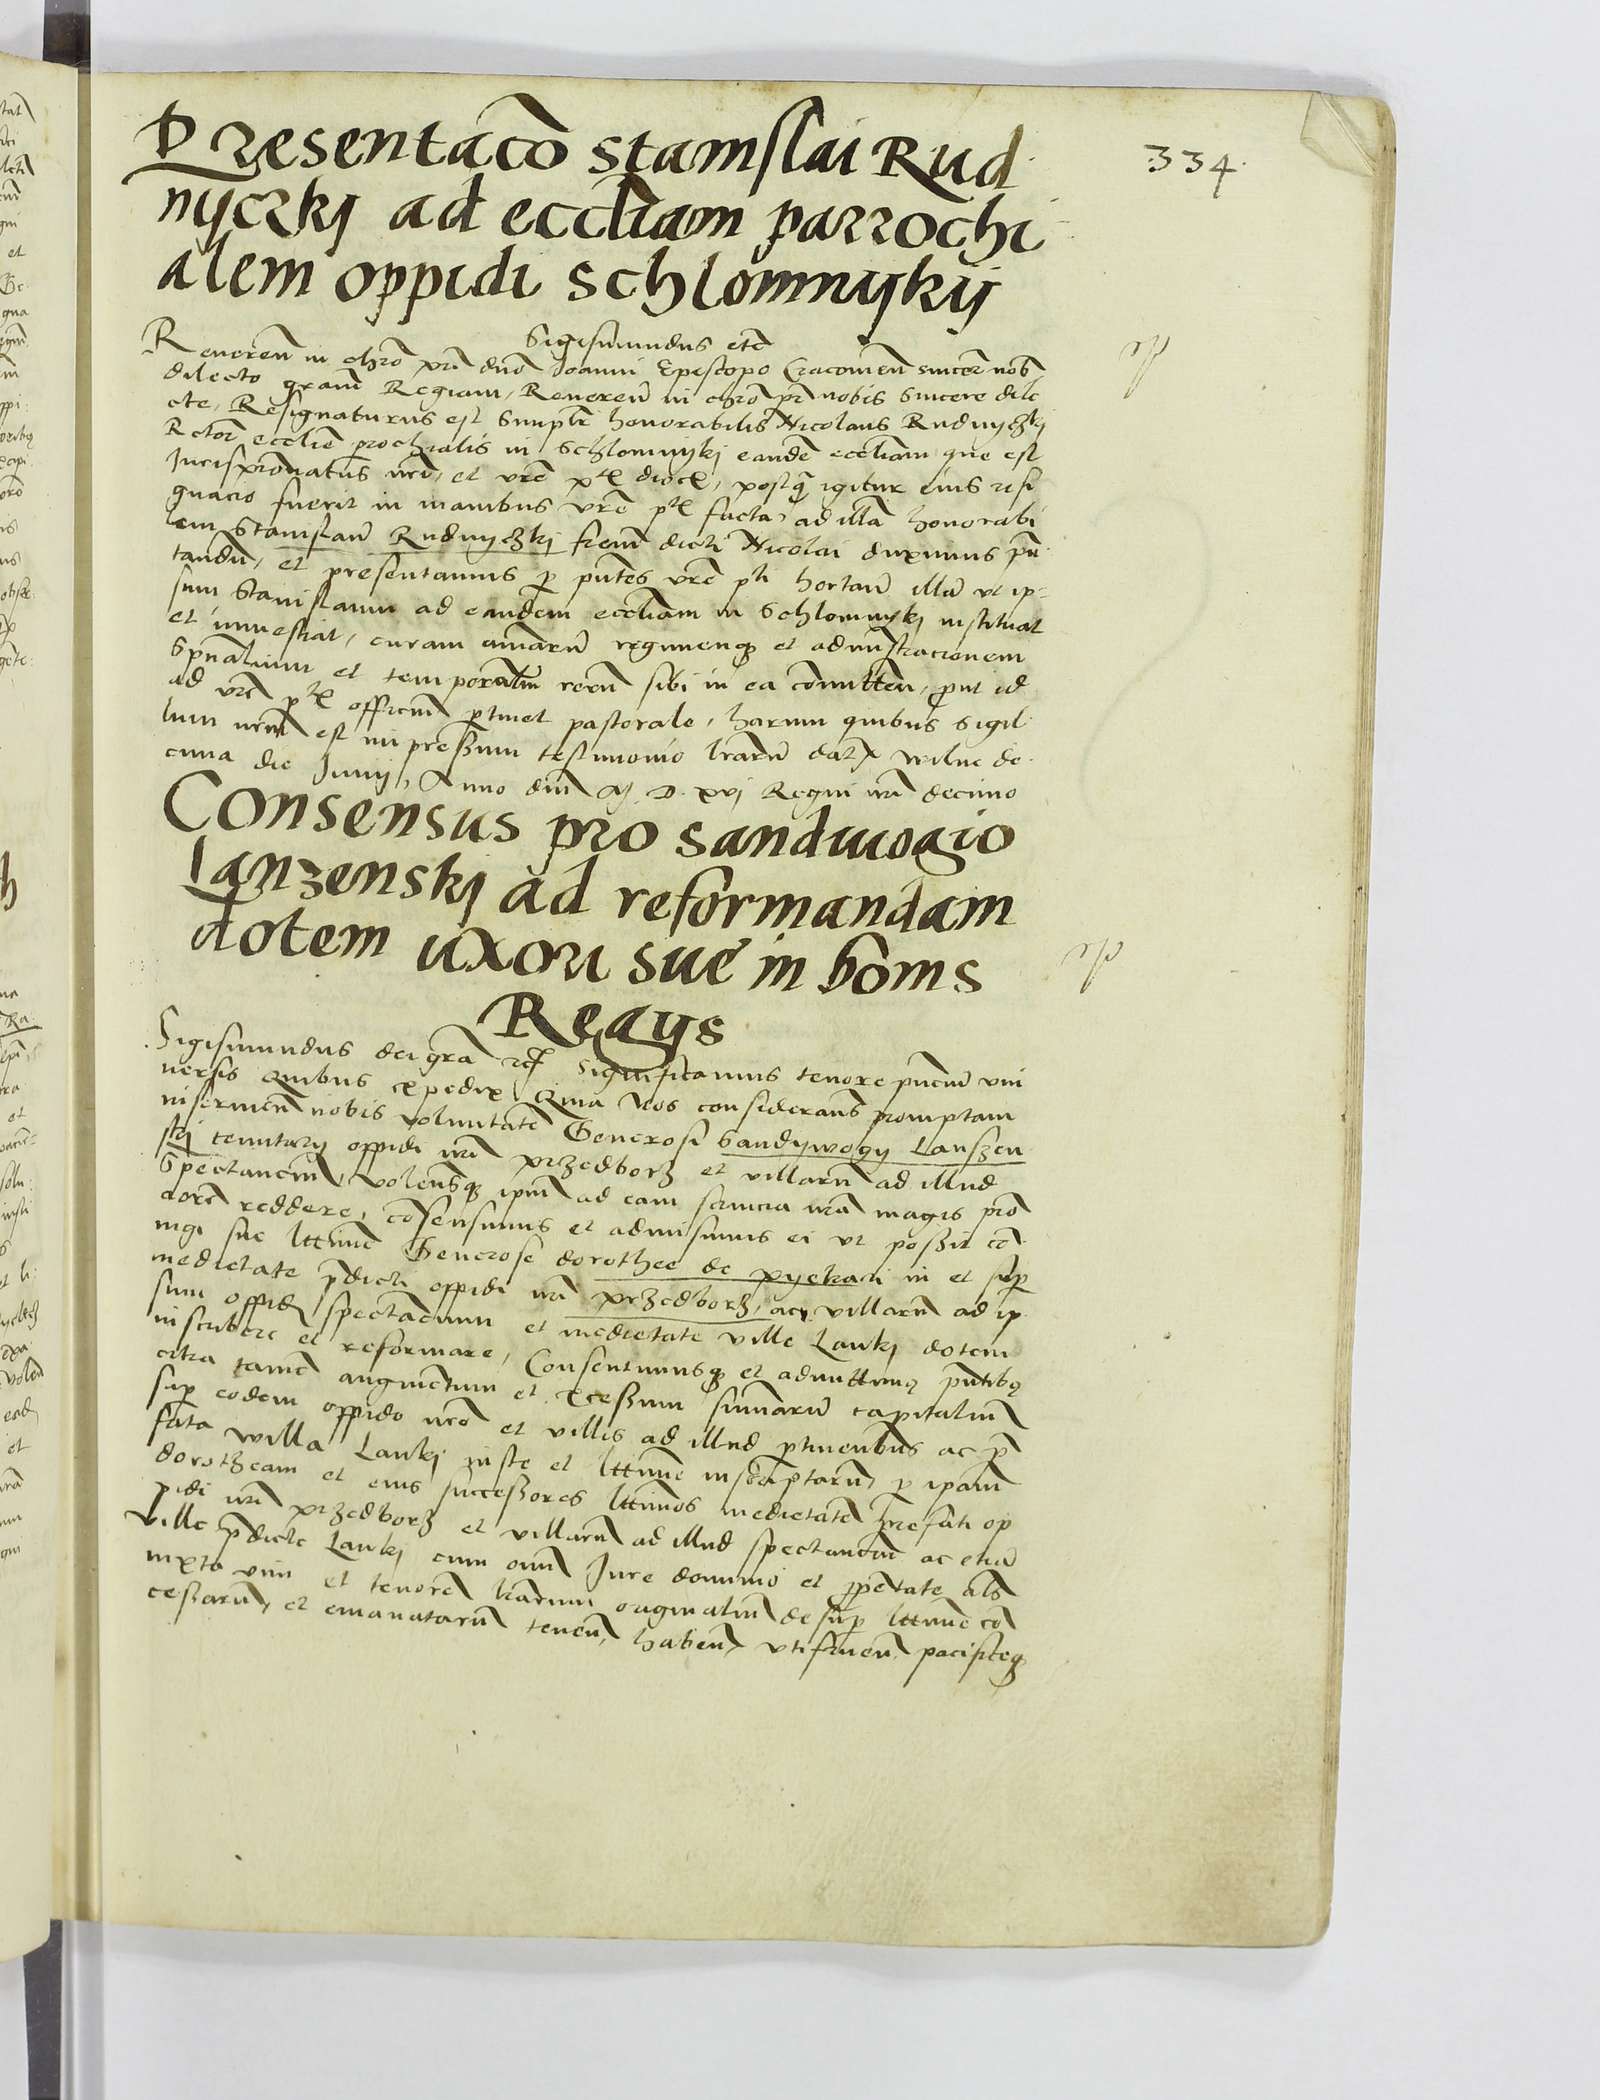 334
Presentaco Stanislai Rud
nyczkj ad eccliam parrochi
alem oppidi Schlomnykij
Sigismundus etc
Reveren in chro pri dno Joanni Episcopo Cracovien sincer nob
dilecto gram Regiam, Reveren in chro pr nobis sincere dile
cte, Resignaturus est simplr honorabilis Nicolaus Rudnyczkj
Rctor ecclie prochialis in Schlomnykj eande eccliam que est
Jurispronatus nri, et vre pt dioc, postq igitur eius resi
gnacio fuerit in manibus vre pt facta, ad illa honorabi
lem Stanislau Rudnyczkj frem dicti Nicolai duximus pn
tandu, et presentamus p pntes vre pti hortan illa ut ip=
sum Stanislaum ad eandem eccliam in Schlomnykj instituat
et investiat, curam animaru regimenq et administracionem
Spualium et temporalium reru sibi in ea committen, prout id
ad vre pt officiu ptinet pastorale, harum quibus Sigil
lum nrm est impressum testimonio lraru dat Wilne de
cima die Junij, Anno dni M. D. xvj Regni nri decimo
Consensus pro Sandiuogio
Lanzenskj ad reformandam
dotem uxori sue in bonis
Regijs
Sigismundus dei gra rex Significamus tenore pncium vni
versis quibus expedit Quia Nos considerans promptam
in servien nobis voluntate Generosi Sandywogy Lanszen
skj tenutarij oppidi nri przedborz et villaru ad illud
Spectanciu, volensq ipm ad eam servicia nra magis pro
mciore reddere, cosensimus et admisimus ei ut possit co
iugi sue lttime Generose dorothee de pyekari in et sup
medietate pdicti oppidi nri przedborz, ac villaru ad ip
sum oppid spectancium et medietate ville Lankj dotem
inscribere et reformare, Consentimusq et admittimus pntibus
citra tame augmentum et excessum summaru capitaliu
sup eodem oppido nro et villis ad illud ptinentibus ac p
fata villa Lankj iuste et lttime inscriptaru, p ipam
dorotheam et eius successores lttimos medietate prefati op
pidi nri przedborz et villaru ad illud spectanciu ac etia
ville pdicte Lankj cum omi Jure dominio et ppetate als
iuxta vim et tenore lrarum originaliu desup lttime co
cessaru, et emanataru tenen, haben, utifruen pacificeq